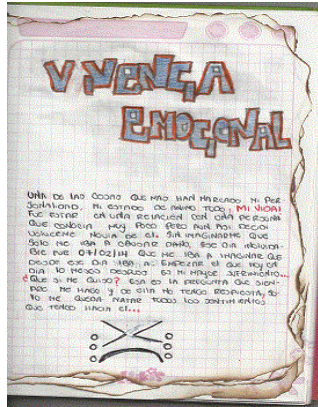 VIVENCIA
EMOCIONAL
UNA DE LAS COSAS QUE MAS HAN MARCADO MI PER-
SONALIDAD, MI ESTADO DE ANIMO TODO, MI VIDA!
FUE ESTAR EN UNA RELACION CON UNA PERSONA
QUE CONOCIA MUY POCO PERO AUN ASI DECIDI
VOLVERME NOVIA DE EL. SIN IMAGINARME QUE
SOLO ME IBA A CAUSAR DAÑO, ESE DIA INOLVIDA-
BLE FUE 07/02/14 QUE ME IBA A IMAGINAR QUE
DESDE ESE DIA IBA A EMPEZAR EL QUE HOY EN
DIA 10 MESES DESPUES ES MI MAYOR SUFRIMIENTO...
¿QUE SI ME QUISO? ESA ES LA PREGUNTA QUE SIEM-
PRE ME HAGO Y DE ESTA NO TENGO RESPUESTA, SO-
LO ME QUEDA MATAR TODOS LOS SENTIMIENTOS
QUE TENGO HACIA EL...